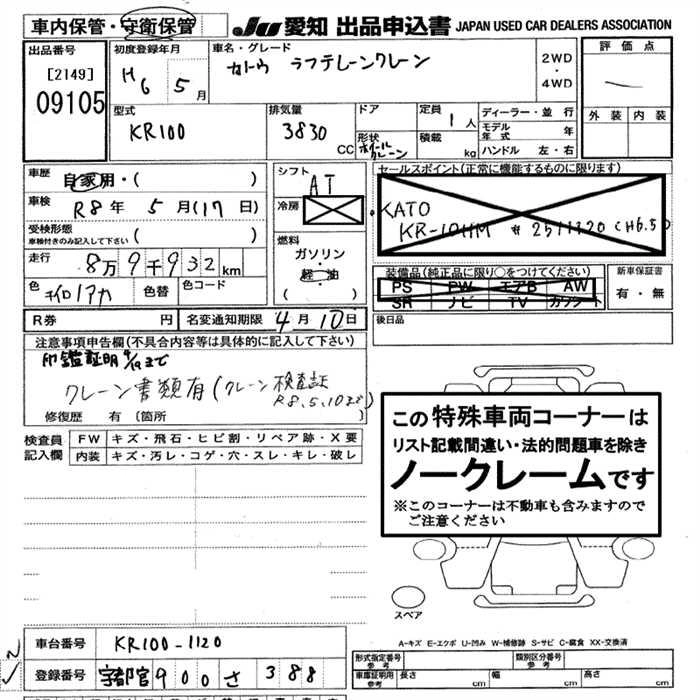 車内保管・守衛保管
JU 愛知 出品申込書 JAPAN USED CAR DEALERS ASSOCIATION
出品番号
[2149]
09105
初度登録年月
H6 5月
車名・グレード
カトウ ラフテレーンクレーン
2WD
・
4WD
評価点
外装 内装
型式
KR100
排気量
3830 CC
ドア
形状
ホイールクレーン
定員
1人
積載 kg
ディーラー・並行
モデル年式 年
ハンドル 左・右
車歴
自家用・( )
車検
R8年 5月(17日)
受検形態
車検付きのみ記入して下さい ( )
走行
8万9千932km
色
色替
色コード
シフト
AT
冷房
燃料
ガソリン・
軽油
( )
セールスポイント(正常に機能するものに限ります)
KATO
KR-10HM # 2511120 CH6.5
装備品(純正品に限り○をつけてください)
PS PW エアB AW
SR ナビ TV カワシート
新車保証書
有・無
後日品
R券 円
名変通知期限 4月10日
注意事項申告欄(不具合内容等は具体的に記入して下さい)
印鑑証明 まで
クレーン書類有(クレーン検査証
R8.5.10まで)
修復歴 有(箇所
検査員記入欄
FW キズ・飛石・ヒビ割・リペア跡・X要
内装 キズ・汚レ・コゲ・穴・スレ・キレ・破レ
この特殊車両コーナーは
リスト記載間違い・法的問題車を除き
ノークレームです
※このコーナーは不動車も含みますので
ご注意ください
スペア
A-キズ E-エクボ U-凹み W-補修跡 S-サビ C-腐食 XX-交換済
車台番号 KR100-1120
登録番号 宇都宮900さ388
形式指定番号 参考
類別区分番号 参考
車庫証明用 参考
長さ cm
幅 cm
高さ cm